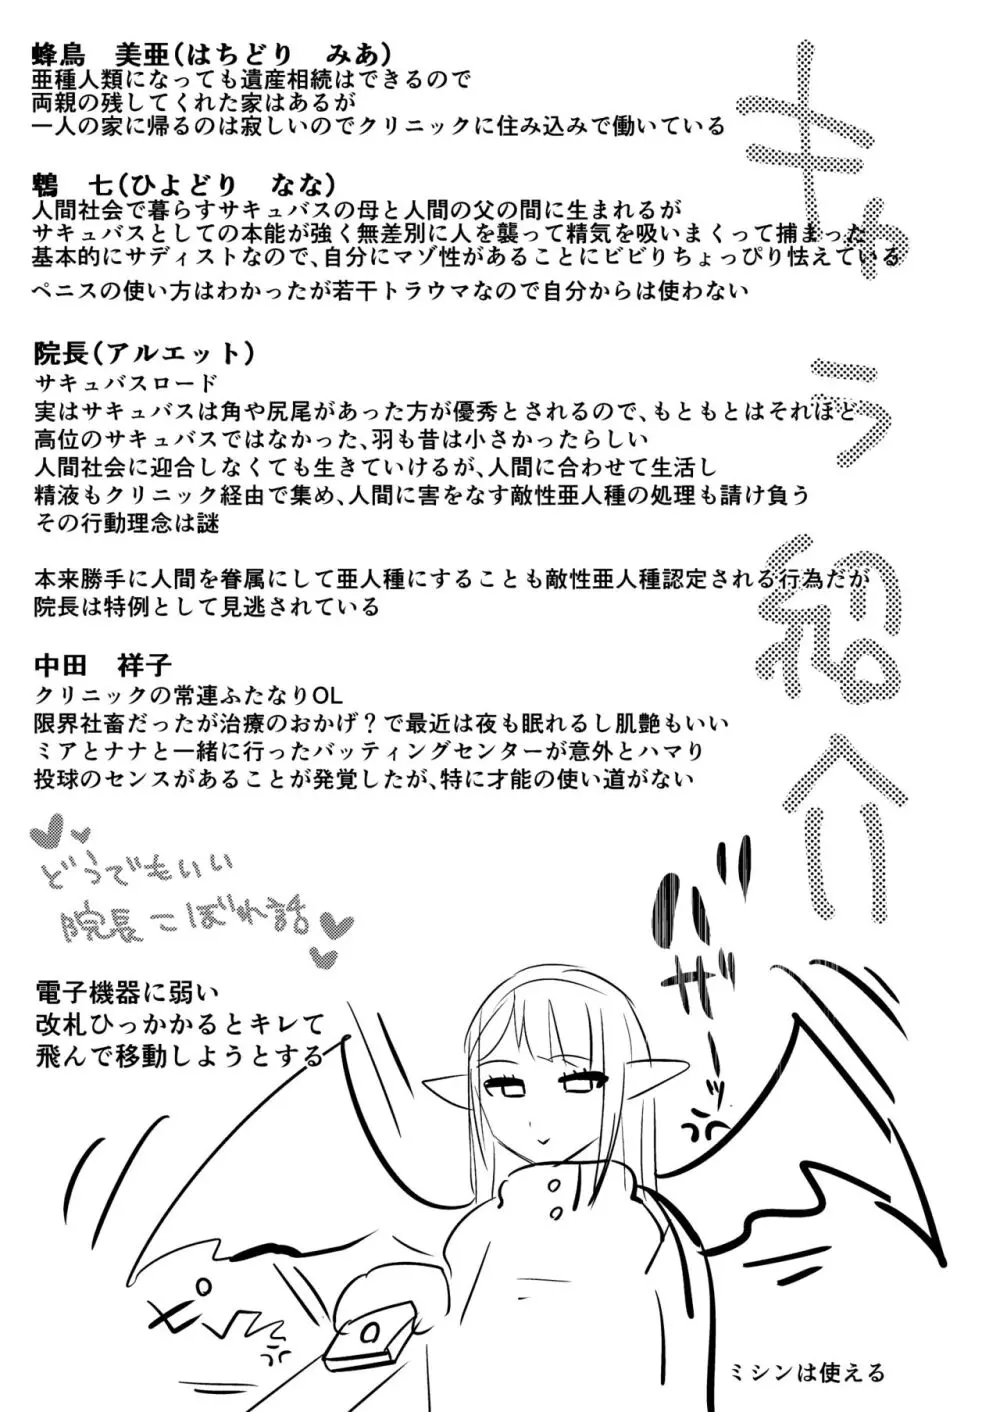 きゃら紹介
蜂鳥　美亜(はちどり　みあ)
亜種人類になっても遺産相続はできるので
両親の残してくれた家はあるが
一人の家に帰るのは寂しいのでクリニックに住み込みで働いている
鵯　七(ひよどり　なな)
人間社会で暮らすサキュバスの母と人間の父の間に生まれるが
サキュバスとしての本能が強く無差別に人を襲って精気を吸いまくって捕まった
基本的にサディストなので、自分にマゾ性があることにビビりちょっぴり怯えている
ペニスの使い方はわかったが若干トラウマなので自分からは使わない
院長(アルエット)
サキュバスロード
実はサキュバスは角や尻尾があった方が優秀とされるので、もともとはそれほど
高位のサキュバスではなかった、羽も昔は小さかったらしい
人間社会に迎合しなくても生きていけるが、人間に合わせて生活し
精液もクリニック経由で集め、人間に害をなす敵性亜人種の処理も請け負う
その行動理念は謎
本来勝手に人間を眷属にして亜人種にすることも敵性亜人種認定される行為だが
院長は特例として見逃されている
中田　祥子
クリニックの常連ふたなりOL
限界社畜だったが治療のおかげ？で最近は夜も眠れるし肌艶もいい
ミアとナナと一緒に行ったバッティングセンターが意外とハマり
投球のセンスがあることが発覚したが、特に才能の使い道がない
どうでもいい
院長こぼれ話
電子機器に弱い
改札ひっかかるとキレて
飛んで移動しようとする
バザーッ
ミシンは使える